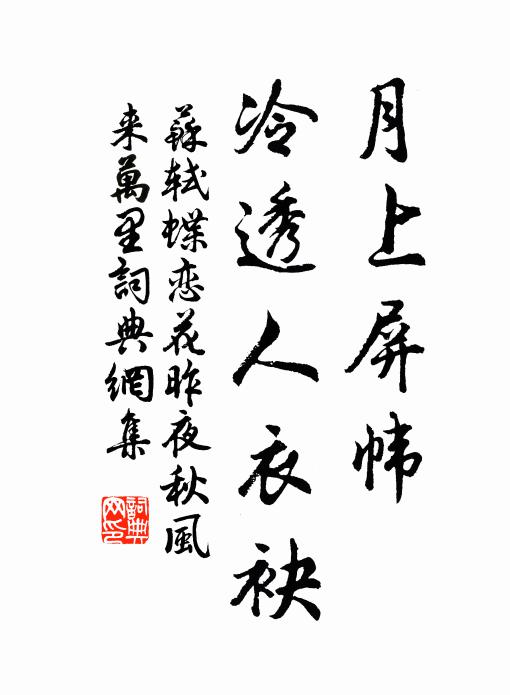 月上屏幃
冷透人衣袂
蘇軾蝶恋花昨夜秋風
来萬里詞典網集
詞典
网印